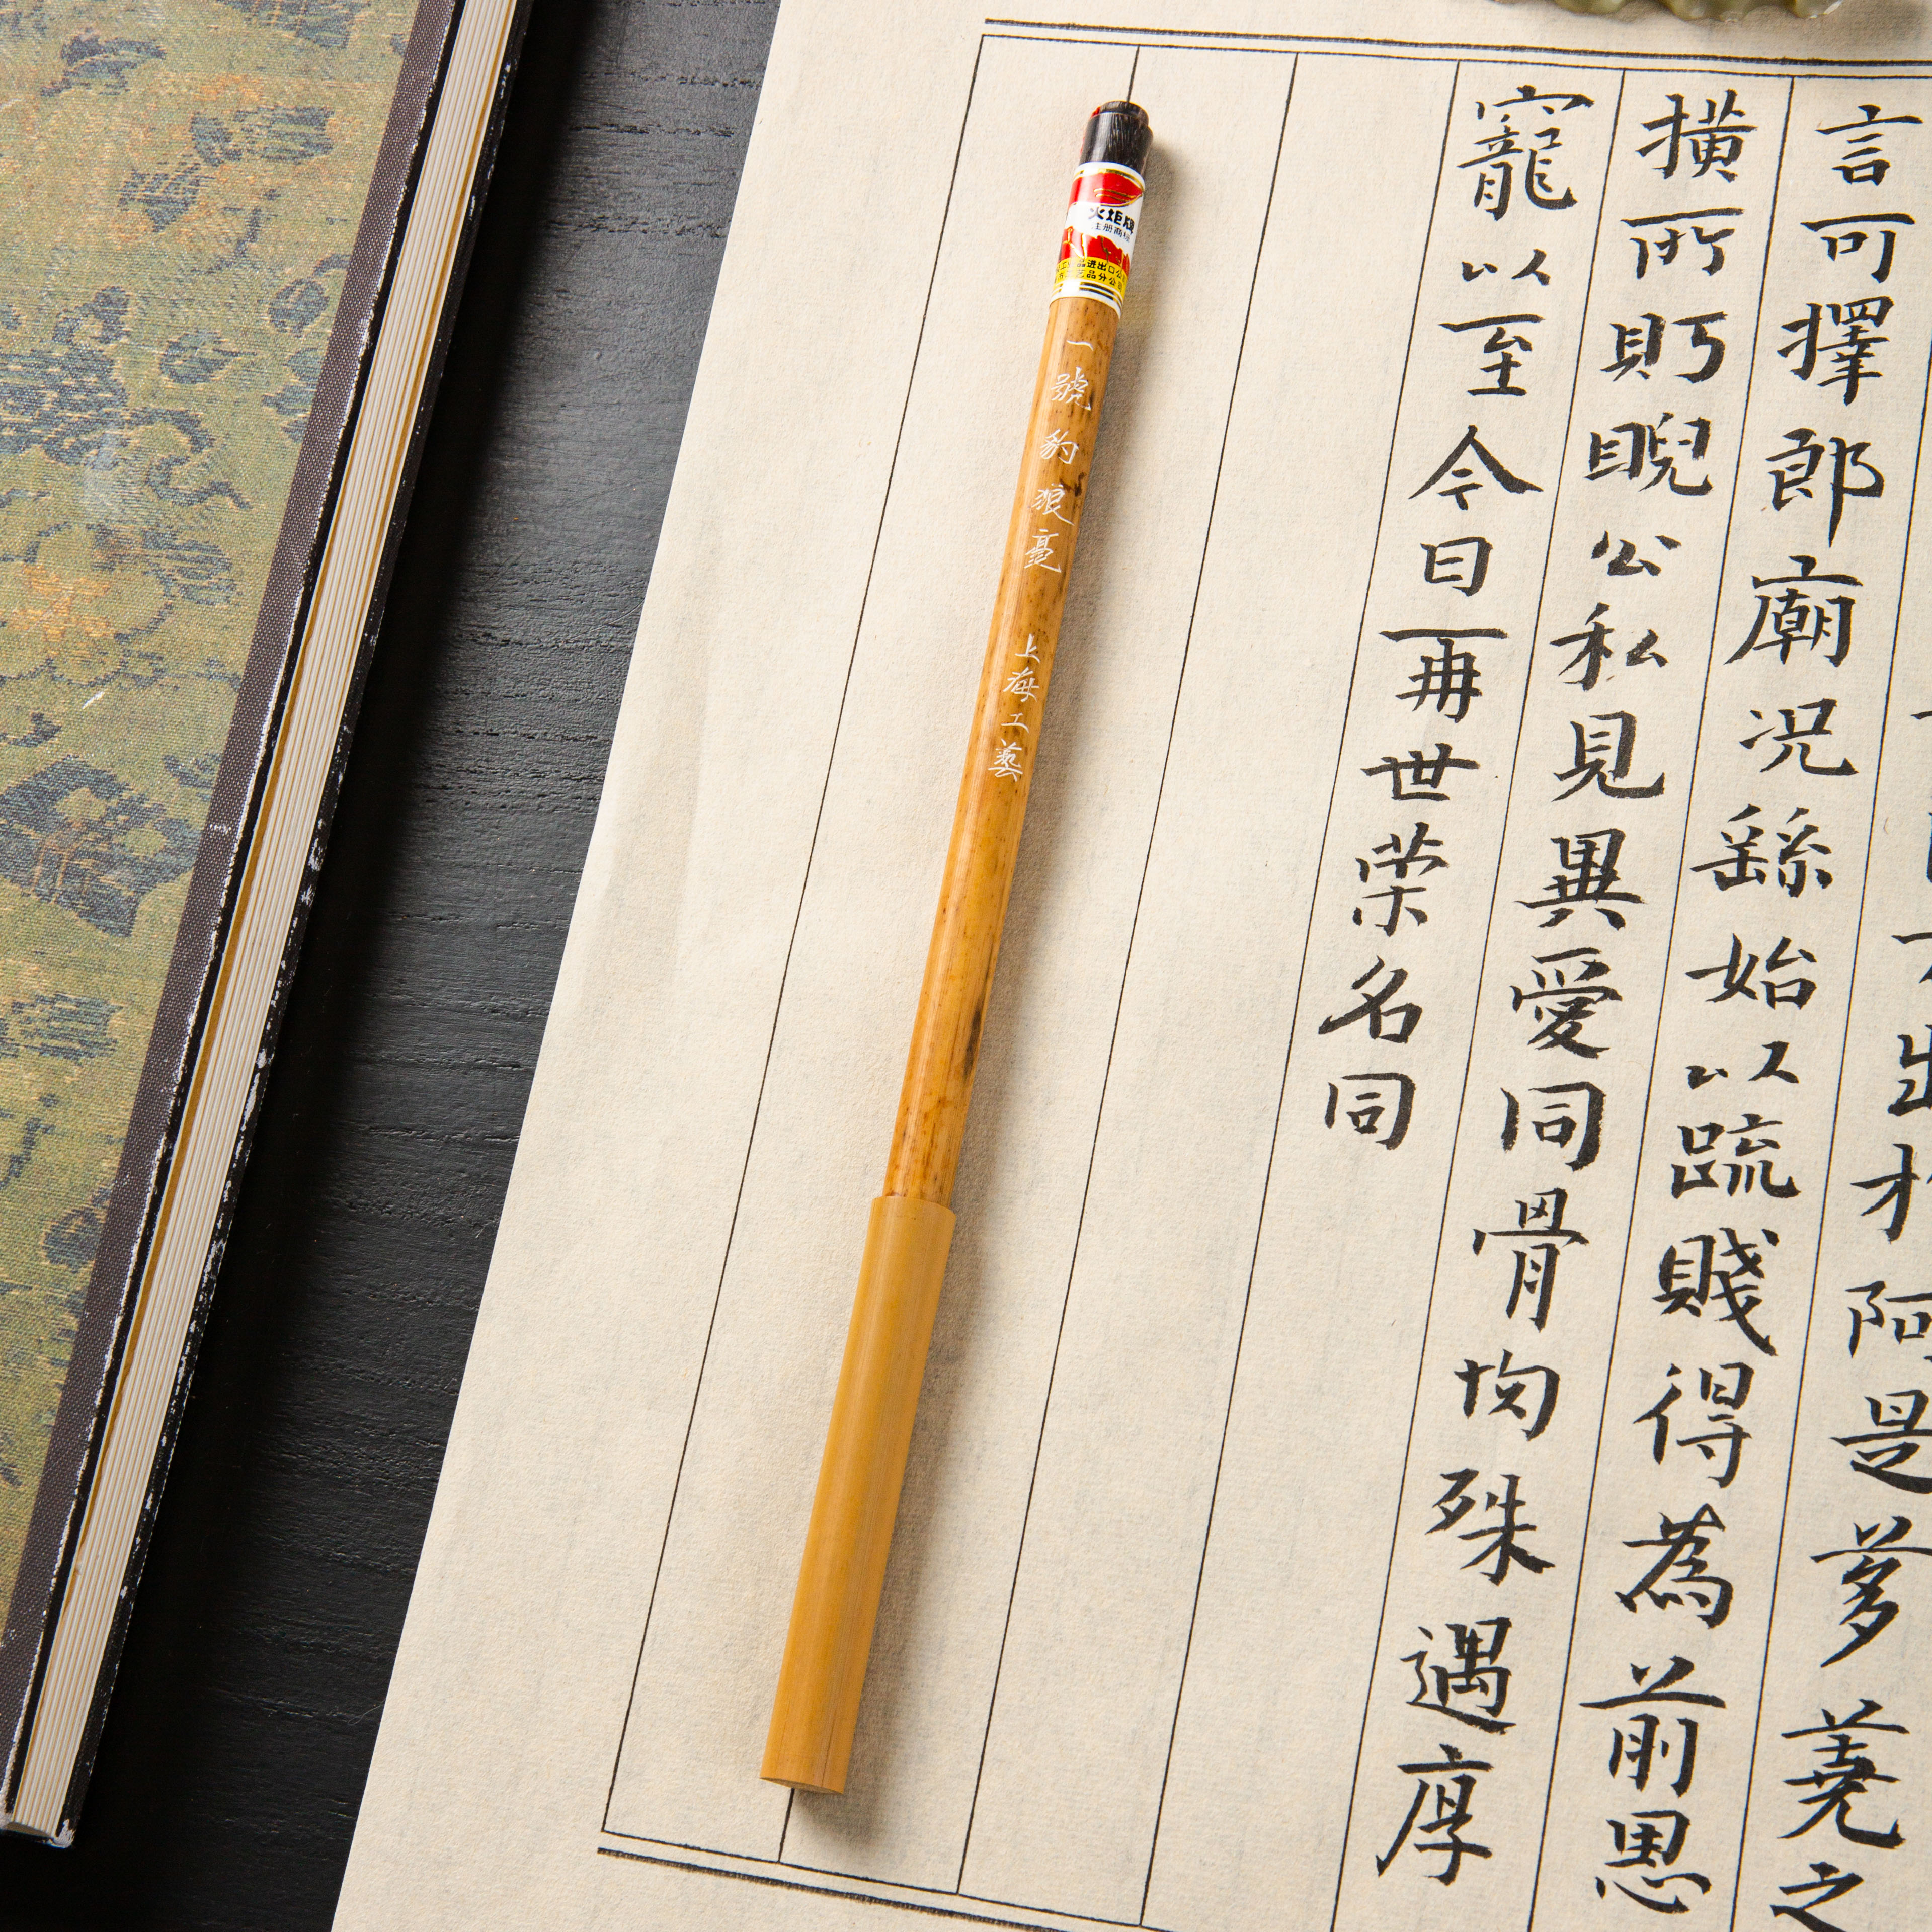 火炬牌
注册商标
品进出口公
品分公
一號豹狼毫 上海工藝
阿是芻蕘之
言可擇郎廟況繇始以疏賤得為前恩
撗所盱睨公私見異愛同骨肉殊遇厚
寵以至今日再世荣名同